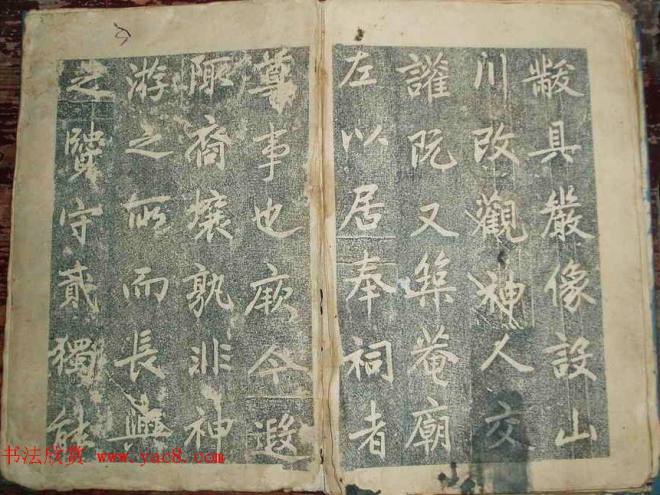 黻具嚴像設山
川改觀神人交
讙既又築菴廟
左以居奉祠者
尊事也厥今遐
陬裔壤孰非神
游之所而長興
之贒守貳獨能
书法欣赏 www.yac8.com